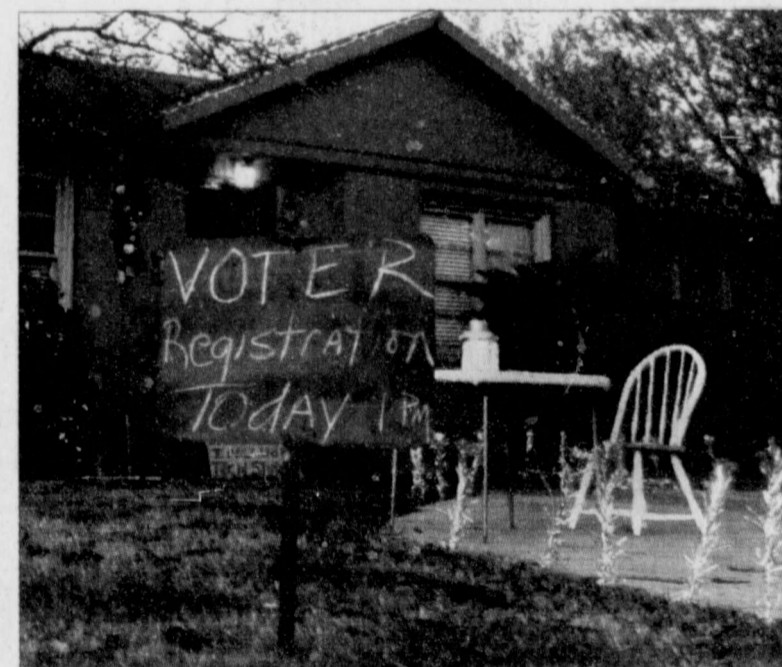 VOTER
Registration
Today 1 PM